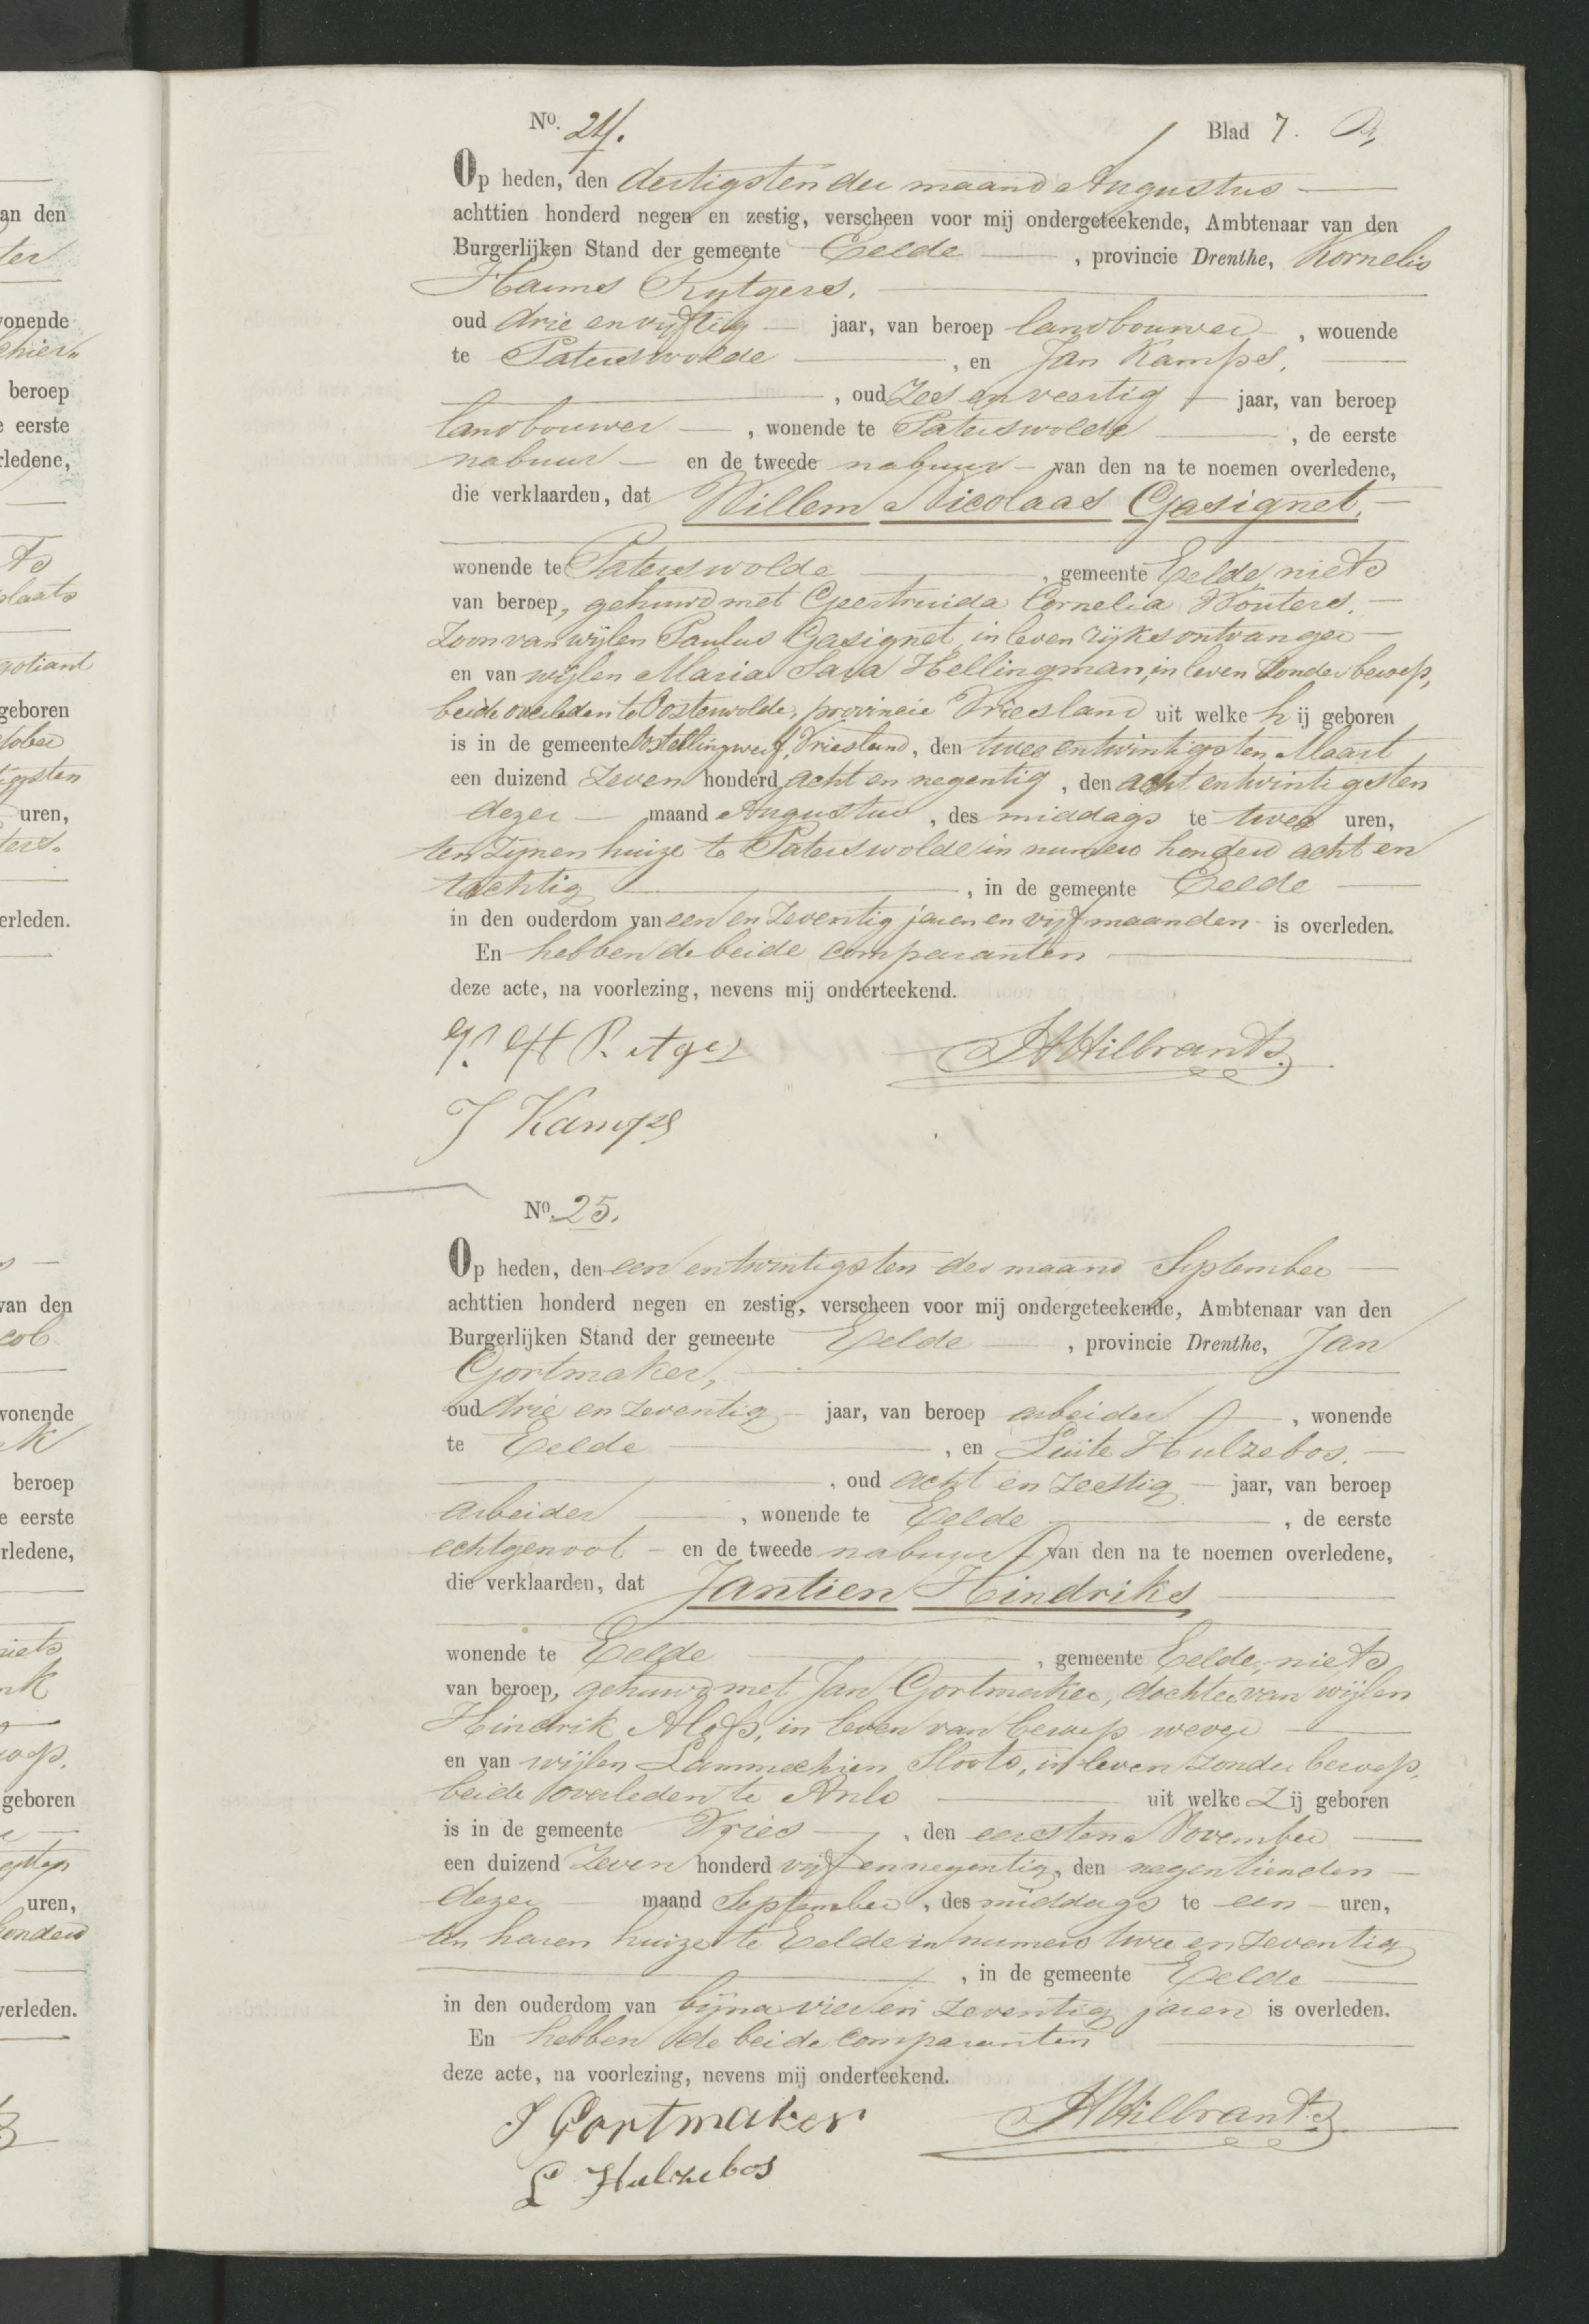 No. 24.
Blad 7.
Op heden, den dertigsten der maand Augustus
achttien honderd negen en zestig, verscheen voor mij ondergeteekende, Ambtenaar van den
Burgerlijken Stand der gemeente Eelde, provincie Drenthe, Kornelis
Harms Rutgers,
oud drie en vijftig jaar, van beroep landbouwer, wonende
te Paterswolde, en Jan Kamps,
, oud Zes en veertig jaar, van beroep
landbouwer, wonende te Paterswolde, de eerste
nabuur en de tweede nabuur van den na te noemen overledene,
die verklaarden, dat Willem Nicolaas Gasignet,
wonende te Paterswolde, gemeente Eelde, niets
van beroep, gehuwd met Geertruida Cornelia Wouters,
Zoon van wijlen Paulus Gasignet, in leven rijksontvanger
en van wijlen Maria Sara Hellingman, in leven Zonder beroep,
beide overleden te Oosterwolde, provincie Vriesland uit welke hij geboren
is in de gemeente Oostellingwerf, Vriesland, den twee en twintigsten Maart
een duizend Zeven honderd acht en negentig, den acht en twintigsten
dezer maand Augustus, des middags te twee uren,
ten Zijnen huize te Paterswolde in numero honderd acht en
tachtig, in de gemeente Eelde
in den ouderdom van een en Zeventig jaren en vijf maanden is overleden.
En hebben de beide comparanten
deze acte, na voorlezing, nevens mij onderteekend.
HHilbrants
J Kamps
No. 25.
Op heden, den een en twintigsten der maand September
achttien honderd negen en zestig, verscheen voor mij ondergeteekende, Ambtenaar van den
Burgerlijken Stand der gemeente Eelde, provincie Drenthe, Jan
Gortmaker,
oud drie en Zeventig jaar, van beroep arbeider, wonende
te Eelde, en Luite Hulzebos,
, oud acht en Zestig jaar, van beroep
arbeider, wonende te Eelde, de eerste
echtgenoot en de tweede nabuur van den na te noemen overledene,
die verklaarden, dat Jantien Hindriks
wonende te Eelde, gemeente Eelde, niets
van beroep, gehuwd met Jan Gortmaker, dochter van wijlen
Hindrik Alofs, in leven van beroep wever
en van wijlen Lammechien Sloots, in leven Zonder beroep,
beide overleden te Anlo uit welke Zij geboren
is in de gemeente Vries, den eersten November
een duizend Zeven honderd vijf en negentig, den negentienden
dezer maand September, des middags te een uren,
ten haren huize te Eelde in numero twee en Zeventig
, in de gemeente Eelde
in den ouderdom van bijna vier en Zeventig jaren is overleden.
En hebben de beide Comparanten
deze acte, na voorlezing, nevens mij onderteekend.
J Gortmaker
HHilbrants
L Hulzebos